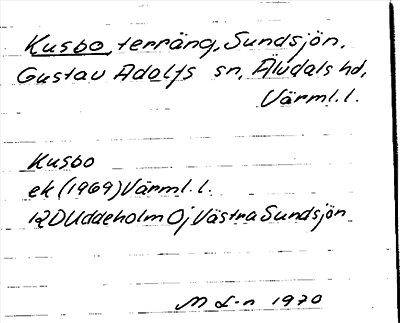 Kusbo, terräng, Sundsjön,
Gustav Adolfs sn, Älvdals hd,
Värml. l.
Kusbo
ek (1969) Värml. l.
12D Uddeholm 0j Västra Sundsjön
M L-n 1970